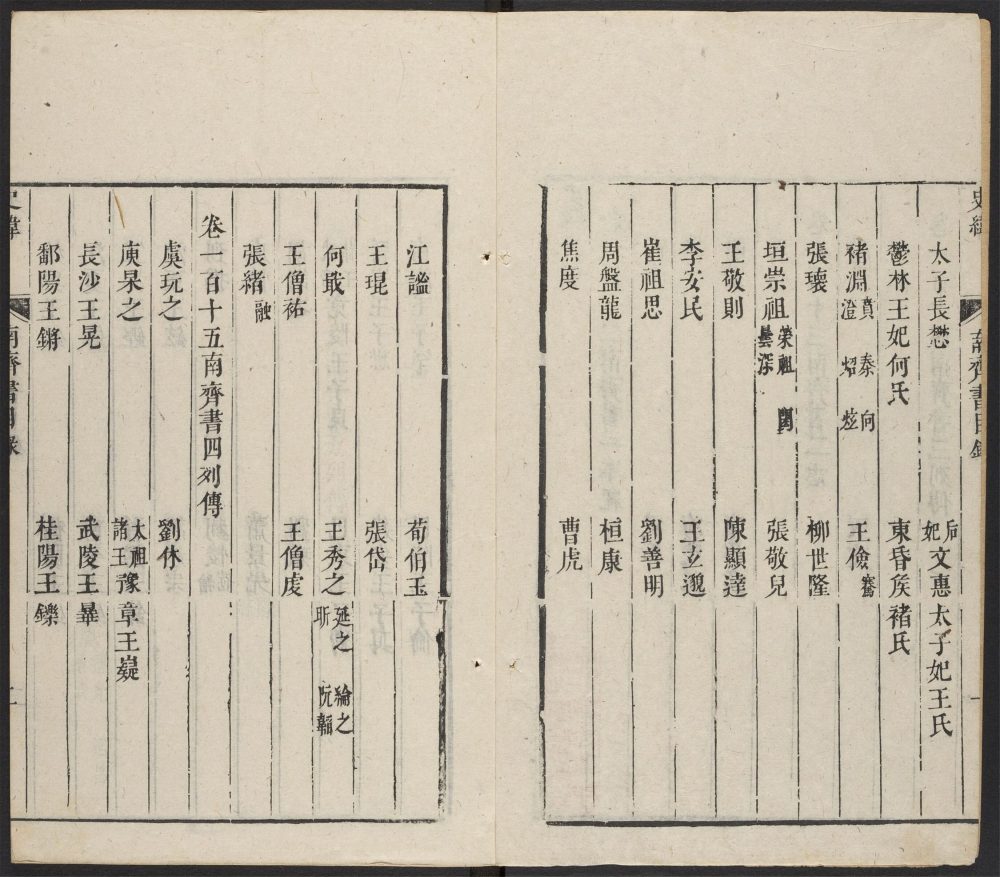 史緯
南齊書目錄
一
太子長懋 后妃文惠太子妃王氏
鬱林王妃何氏 東昏侯褚氏
褚淵 賁 澄 蓁 炤 向 炫 王儉 騫
張瓌 柳世隆
垣崇祖 榮祖 曇深 閎 張敬兒
王敬則 陳顯達
李安民 王玄邈
崔祖思 劉善明
周盤龍 桓康
焦度 曹虎
江謐 荀伯玉
王琨 張岱
何戢 王秀之 延之 昕 綸之 阮韜
王僧祐 王僧虔
張緒 融
卷一百十五南齊書四列傳
虞玩之 劉休
庾杲之 太祖諸王豫章王嶷
長沙王晃 武陵王曅
鄱陽王鏘 桂陽王鑠
史緯
南齊書目錄